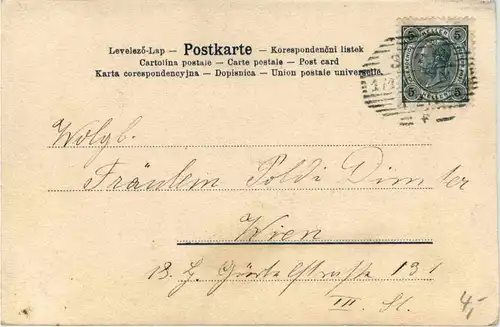 Levelező-Lap — Postkarte — Korespondenční listek
Cartolina postale — Carte postale — Post card
Karta corespondencyjna — Dopisnica — Union postale universelle.
5 5
5 5
Wolgb.
Fräulein Poldi Dimter
Wien
18. B. Gürtelstraße 131
III. St.
4,-